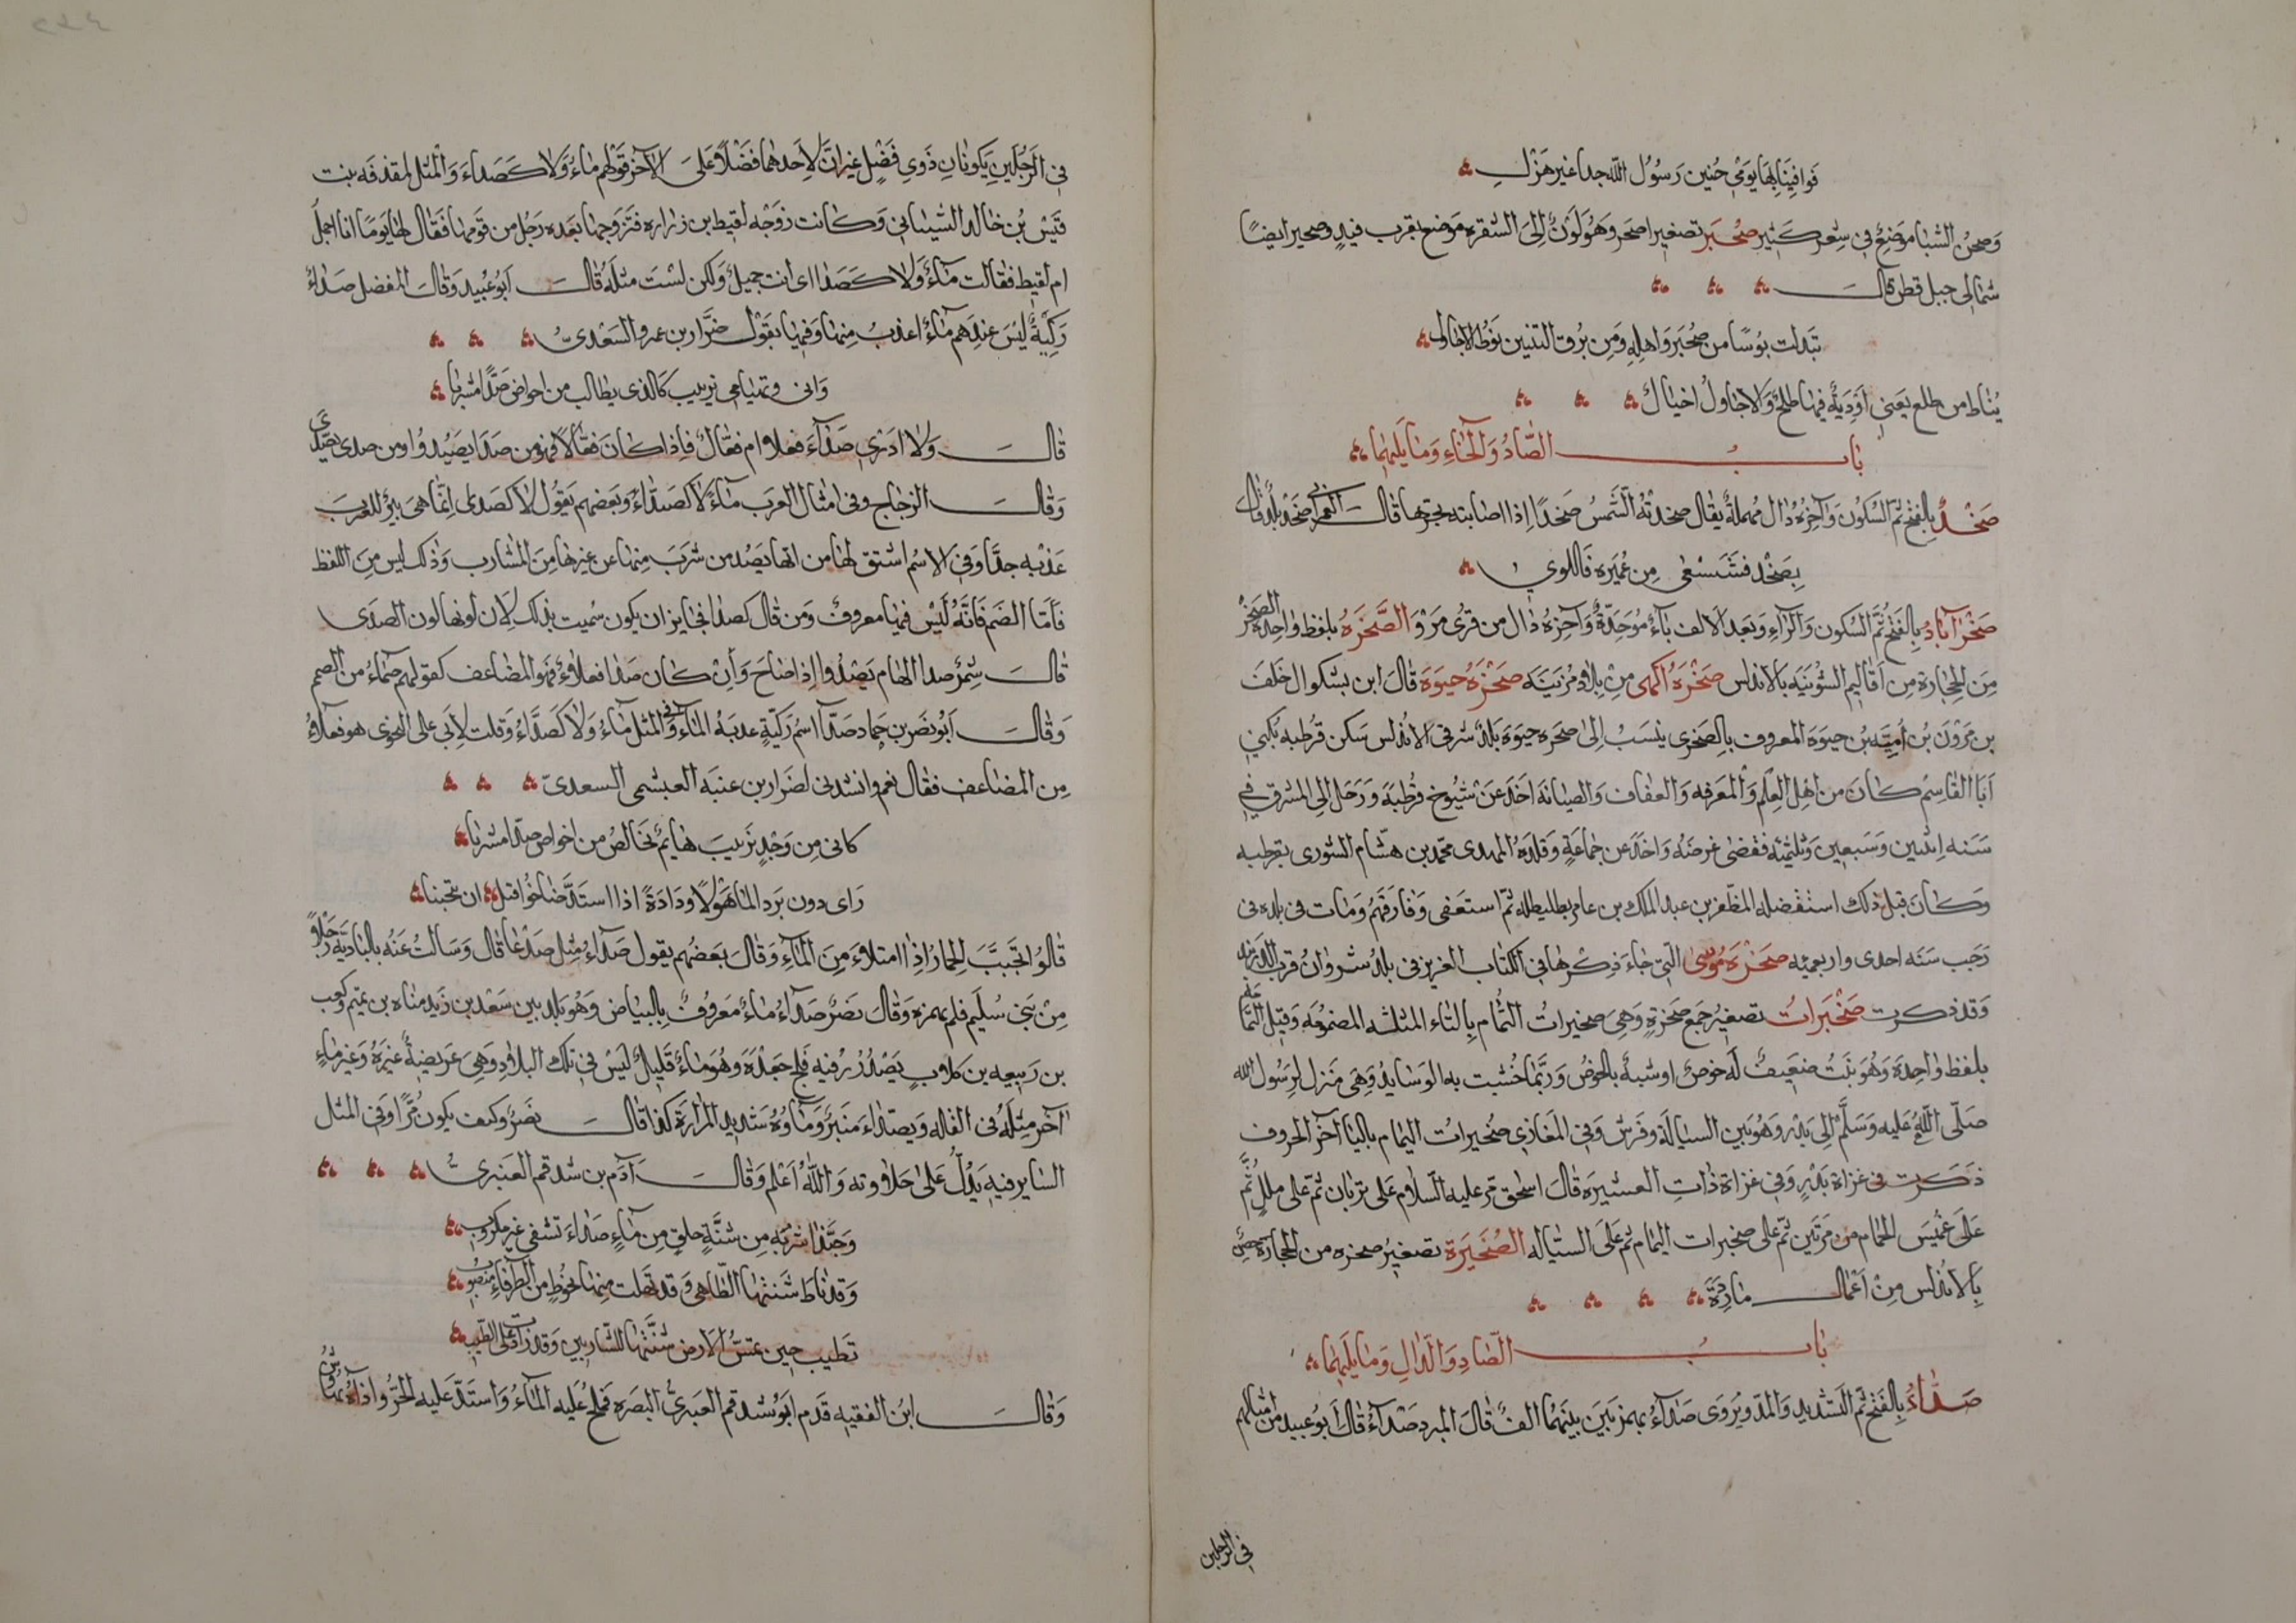 فوافينا بها يومي حنين رسول الله جدا غير هزل
وصحن الشبا موضع في شعر كثير صُحَير تصغير اصحر وهو لون إلى الشقرة موضع بقرب فيد وصحير ايضًا
شمالى جبل قطن قال
تبدلت بوسًا من صُحير واهله ومن برق التينين نوط الاجاول
يُناط من طلع يعنى أودية فيها طلح والاجاول اخيال
باب الصاد والخاء وما يليهما
صَخْدٌ بالفتح ثم السكون وآخره دال مهملة يقال صخدته الشمس صخدًا إذا اصابته بحرها قال العمراني صَخْد بلد قال
بصَخْد فشسعى من عُميرة فاللوي
صَخْرآباذُ بالفتح ثم السكون والراء وبعد الالف باء موحدة وآخره ذال من قرى مرو والصَّخْرَةُ بلفظ واحدة الصخر
من الحجارة من اقاليم الشونية بالاندلس صخرة أكهى من بلاد مزينة صخرة حيوة قال ابن بشكوال خلف
بن مرون بن أمية بن حيوة المعروف بالصخرى ينسب إلى صخرة حيوة بلد شرقى الاندلس سكن قرطبة يكنى
أبا القاسم كان من اهل العلم والمعرفة والعفاف والصيانة اخذ عن شيوخ قرطبة ورحل إلى المشرق في
سنه اثنين وسبعين وثلثمئه فقضى غرضه واخذ عن جماعة وقلده المهدى محمد بن هشام الشورى بقرطبه
وكان قبل ذلك استقضله المظفر بن عبد الملك بن عامر بطليطلة ثم استعفى وفارقهم ومات فى بلده فى
رجب سنه احدى واربعمئه صخرة موسى التي جاء ذكرها في الكتاب العزيز فى بلد شروان قرب الدربند
وقد ذكرت صُخَيراتُ تصغير جمع صخرة وهي صخيرات الثُمام بالثاء المثلثه المضمومه وقيل الثمامة
بلفظ واحدة وهو نبت ضعيف له خوص او شبه بالخوص وربما حشيت به الوسايد وهى منزل لرسول الله
صلّى الله عليه وسلّم إلى بدر وهو بين السيالة وفرش وفي المغازي صُخيرات اليمام باليا آخر الحروف
ذكرت فى غزاة بدر وفى غزاة ذات العشيره قال اسحق مر عليه السلام على تربان ثم على ملل ثُمَّ
على غميس الحمام من مرتين ثم على صخيرات اليمام ثم على السيّاله الصُخَيرَة تصغير صخره من الحجارة حصن
بالاندلس من اعمال ماردة
باب الصاد والدال وما يليهما
صَدَّاءُ بالفتح ثم التشديد والمد ويُروى صَدْآءُ بهمزتين بينهما الف قال المبرد صَدْآءُ قال ابو عبيد من امثالهم
في الرجلين
في الرجلين يكونان ذوي فضل غير أن لاحدهما فضلًا على الآخر قولهم ماءٌ ولا كصداء والمثل لقذفه بنت
قيس بن خالد الشيبانى وكانت زوجة لقيط بن زراره فتزوجها بعده رجل من قومها فقال لها يومًا انا اجمل
ام لقيط فقالت مآءٌ ولا كصدا اى انت جميل ولكن لستَ مثله قال ابو عبيد وقال المفضل صداءُ
ركيّة ليس عندهم مآءٌ اعذب منها وفيها يقول ضرّار بن عمرو السعدى
وانى وتهيامى بزينب كالذى يطالب من احواض صدّا مشربا
قال ولا ادري صداءَ فعلا ام فعال فإذا كان فعّالًا فهو من صدا يصيدوا ومن صدى يصدى
وقال الزجاج وفى امثال العرب مآء لا كصدّاء وبعضهم يقول لا كصدى إنما هى بير للعرب
عذبه جدًا وفى الاسم اشتق لها من انها يصد من شرب منها عن غيرها من المشارب وذلك ليس من اللفظ
فأما الضم فانه ليس فيها معروفٌ ومن قال كصدا فجايز ان يكون سُميت بذلك لأن لونها لون الصدى
قال شمر صدا الهام يصدوا إذا صاح وأن كان صدا فعلاءُ فهو المضاعف كقولهم صماءُ من الصمم
وقال أبو نصر بن حماد صدّا اسم ركية عذبة الماء وفى المثل ماءٌ ولا كصدّاء وقلت لابى على النحوى هو فعلاءُ
من المضاعف فقال نعم وانشدنى لضرار بن عنبة العبشمى السعدى
كانى من وجد بزينب هايم يخالص من احواض صدا مشربا
راى دون برد الما هولًا وذادة اذا استد صاحوا قبل ان يتحببا
قالوا تحبّبَ الحمار إذا امتلاء من الماء وقال بعضهم يقول صدآء مثل صدعا قال وسالت عنه بالبادية رجلًا
من بنى سليم فلم يهمزه وقال نصر صداءُ ماءٌ معروفٌ بالبياض وهو بلد بين سعد بن زيد مناه بن تميم وكعب
بن ربيعه بن كلاب يصدر فيه فلج جعدة وهو ماءٌ قليل ليس في تلك البلاد وهي عريضةٌ غيره وغير ماءٍ
آخر مثله فى القله وبصداء منبر ومآوه شديد المرارة كذا قال نصر وكيف يكون مُرًّا وفى المثل
الساير فيه يدلّ على حلاوته والله أعلم وقال آدم بن شدقم العنبرىُّ
وحبّذا شربة من شنّةٍ خلق من مآء صداء تشفى غير مكروب
وقد ناط شنتها الطاهى وقد نهلت منها بحوض من الطرفاء منصوب
تطيب حين تمسّ الارض شنّتها للشاربين وقد زادت على الطيب
وقال ابن الفقيه قدم أبو شدقم العنبرىُّ البصره فملح عليه الماءُ واستدّ عليه الحرُّ واذاه